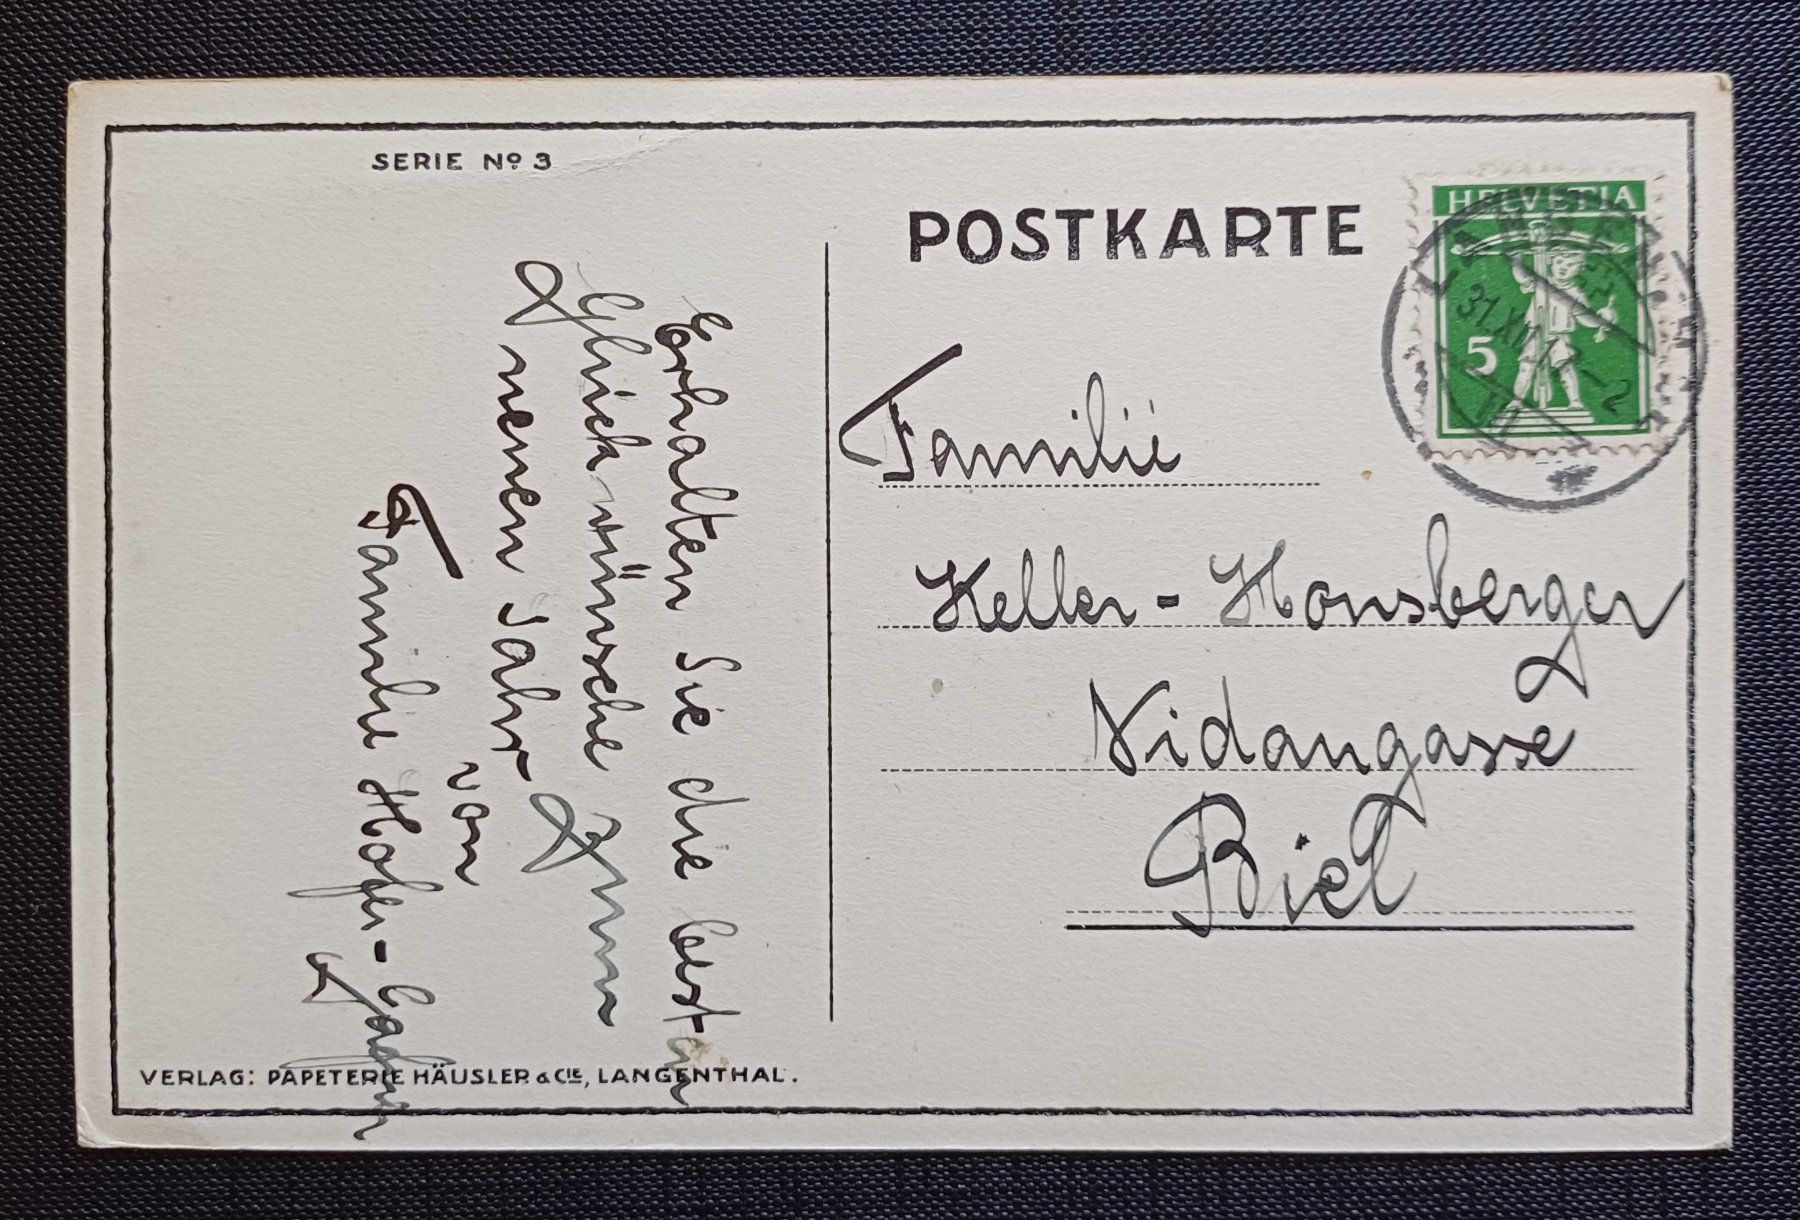 SERIE Nº 3
POSTKARTE
HELVETIA
5
31.XII.17-2
Erhalten Sie die besten
Glückwünsche zum
neuen Jahr
von
Familie Hofer-
Familie
Keller-Honsberger
Nidaugasse
Biel
VERLAG: PAPETERIE HÄUSLER & CIE, LANGENTHAL.